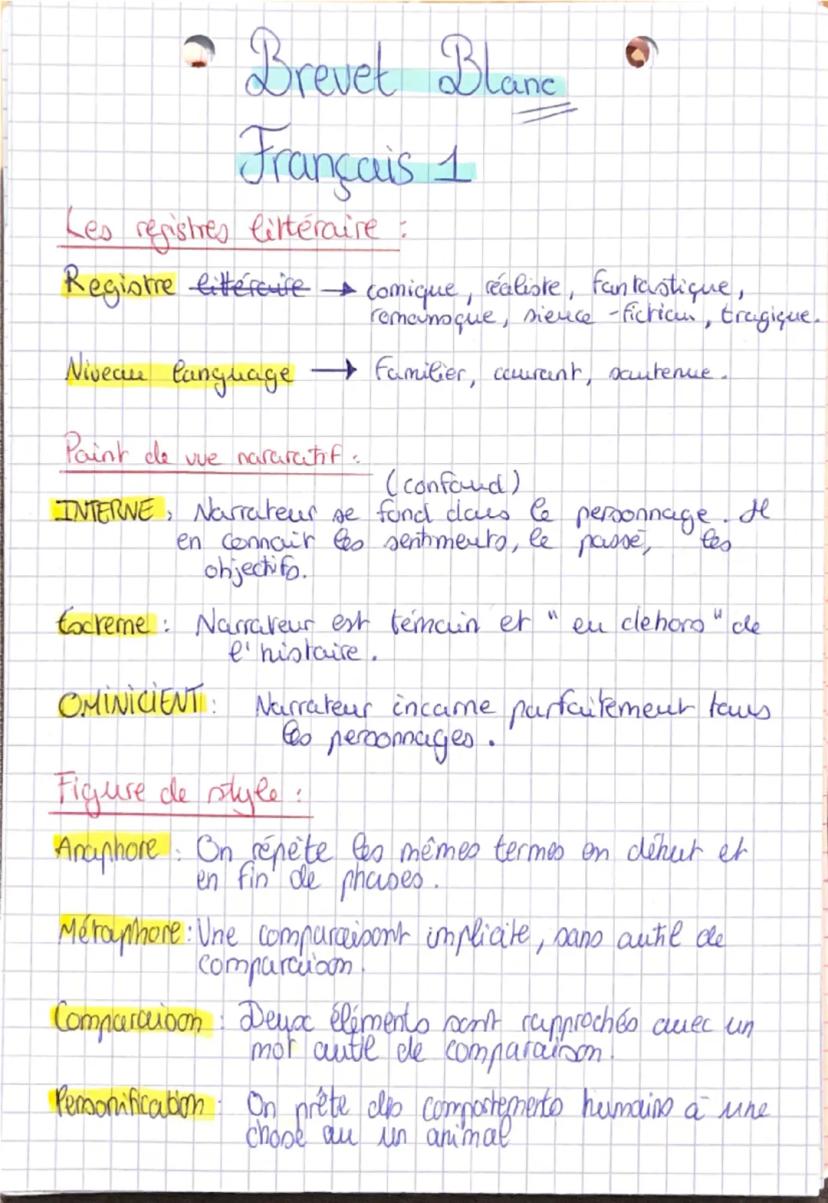 Brevet Blanc
Français 1
Les registres littéraire :
Registre littéraire → comique, réaliste, fantastique,
romanesque, sience-fiction, tragique.
Niveau language → familier, courant, soutenue.
Point de vue nararatif :
(confond)
INTERNE : Narrateur se fond dans le personnage. Il
en connait les sentiments, le passé, les
objectifs.
Externe : Narrateur est témoin et "en dehors" de
l'histoire.
OMINICIENT : Narrateur incarne parfaitement tous
les personnages.
Figure de style :
Anaphore : On répète les mêmes termes en début et
en fin de phases.
Métaphore : Une comparaisont implicite, sans outil de
comparaison.
Comparaison : Deux éléments sont rapprochés avec un
mot outil de comparaison.
Personnification : On prête des comportements humains à une
chose ou un animal